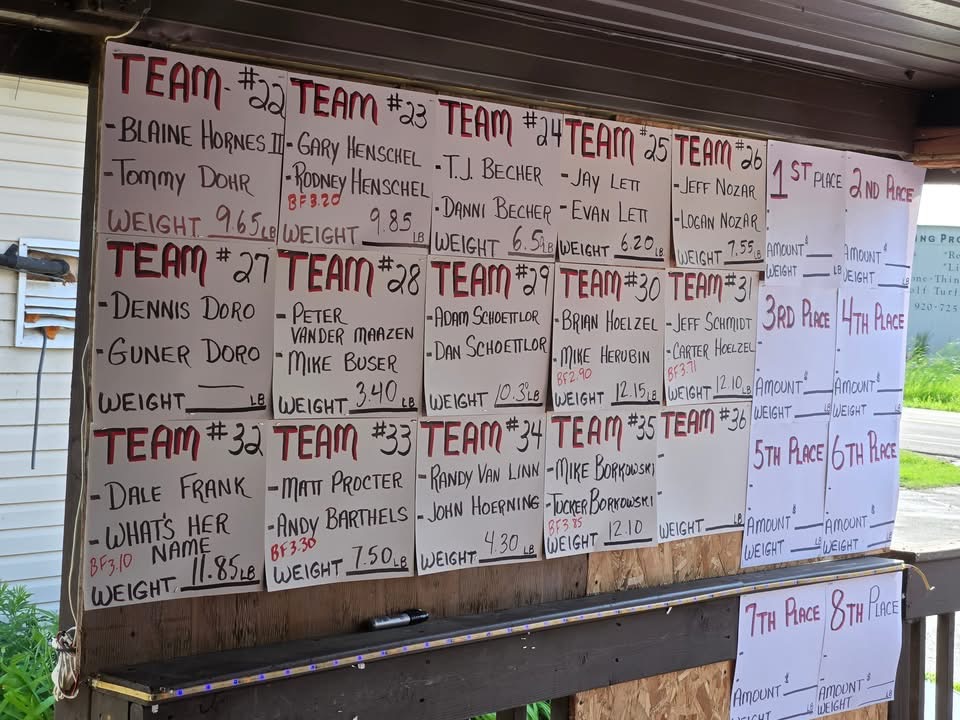 TEAM- #22
-BLAINE HORNES II
-TOMMY DOHR
WEIGHT 9.65 LB
TEAM #23
-GARY HENSCHEL
-RODNEY HENSCHEL
BF3.20
WEIGHT 9.85 LB
TEAM #24
-T.J. BECHER
-DANNI BECHER
WEIGHT 6.5 LB
TEAM #25
-JAY LETT
-EVAN LETT
WEIGHT 6.20 LB
TEAM #26
-JEFF NOZAR
-LOGAN NOZAR
WEIGHT 7.55 LB
TEAM #27
-DENNIS DORO
-GUNER DORO
WEIGHT — LB
TEAM #28
-PETER
VANDER MAAZEN
-MIKE BUSER
WEIGHT 3.40 LB
TEAM #29
-ADAM SCHOETTLOR
-DAN SCHOETTLOR
WEIGHT 10.3 LB
TEAM #30
-BRIAN HOELZEL
-MIKE HERUBIN
BF2.90
WEIGHT 12.15 LB
TEAM #31
-JEFF SCHMIDT
-CARTER HOELZEL
BF3.71
WEIGHT 12.10 LB
TEAM #32
-DALE FRANK
-WHAT'S HER
NAME
BF3.10
WEIGHT 11.85 LB
TEAM #33
-MATT PROCTER
-ANDY BARTHELS
BF3.30
WEIGHT 7.50 LB
TEAM #34
-RANDY VAN LINN
-JOHN HOERNING
WEIGHT 4.30 LB
TEAM #35
-MIKE BORKOWSKI
-TUCKER BORKOWSKI
BF3.85
WEIGHT 12.10 LB
TEAM #36
-
-
WEIGHT LB
1ST PLACE
-
-
AMOUNT $
WEIGHT LB
2ND PLACE
-
-
AMOUNT $
WEIGHT LB
3RD PLACE
-
-
AMOUNT $
WEIGHT LB
4TH PLACE
-
-
AMOUNT $
WEIGHT LB
5TH PLACE
-
-
AMOUNT $
WEIGHT LB
6TH PLACE
-
-
AMOUNT $
WEIGHT LB
7TH PLACE
-
-
AMOUNT $
WEIGHT
8TH PLACE
-
-
AMOUNT $
WEIGHT
920-725